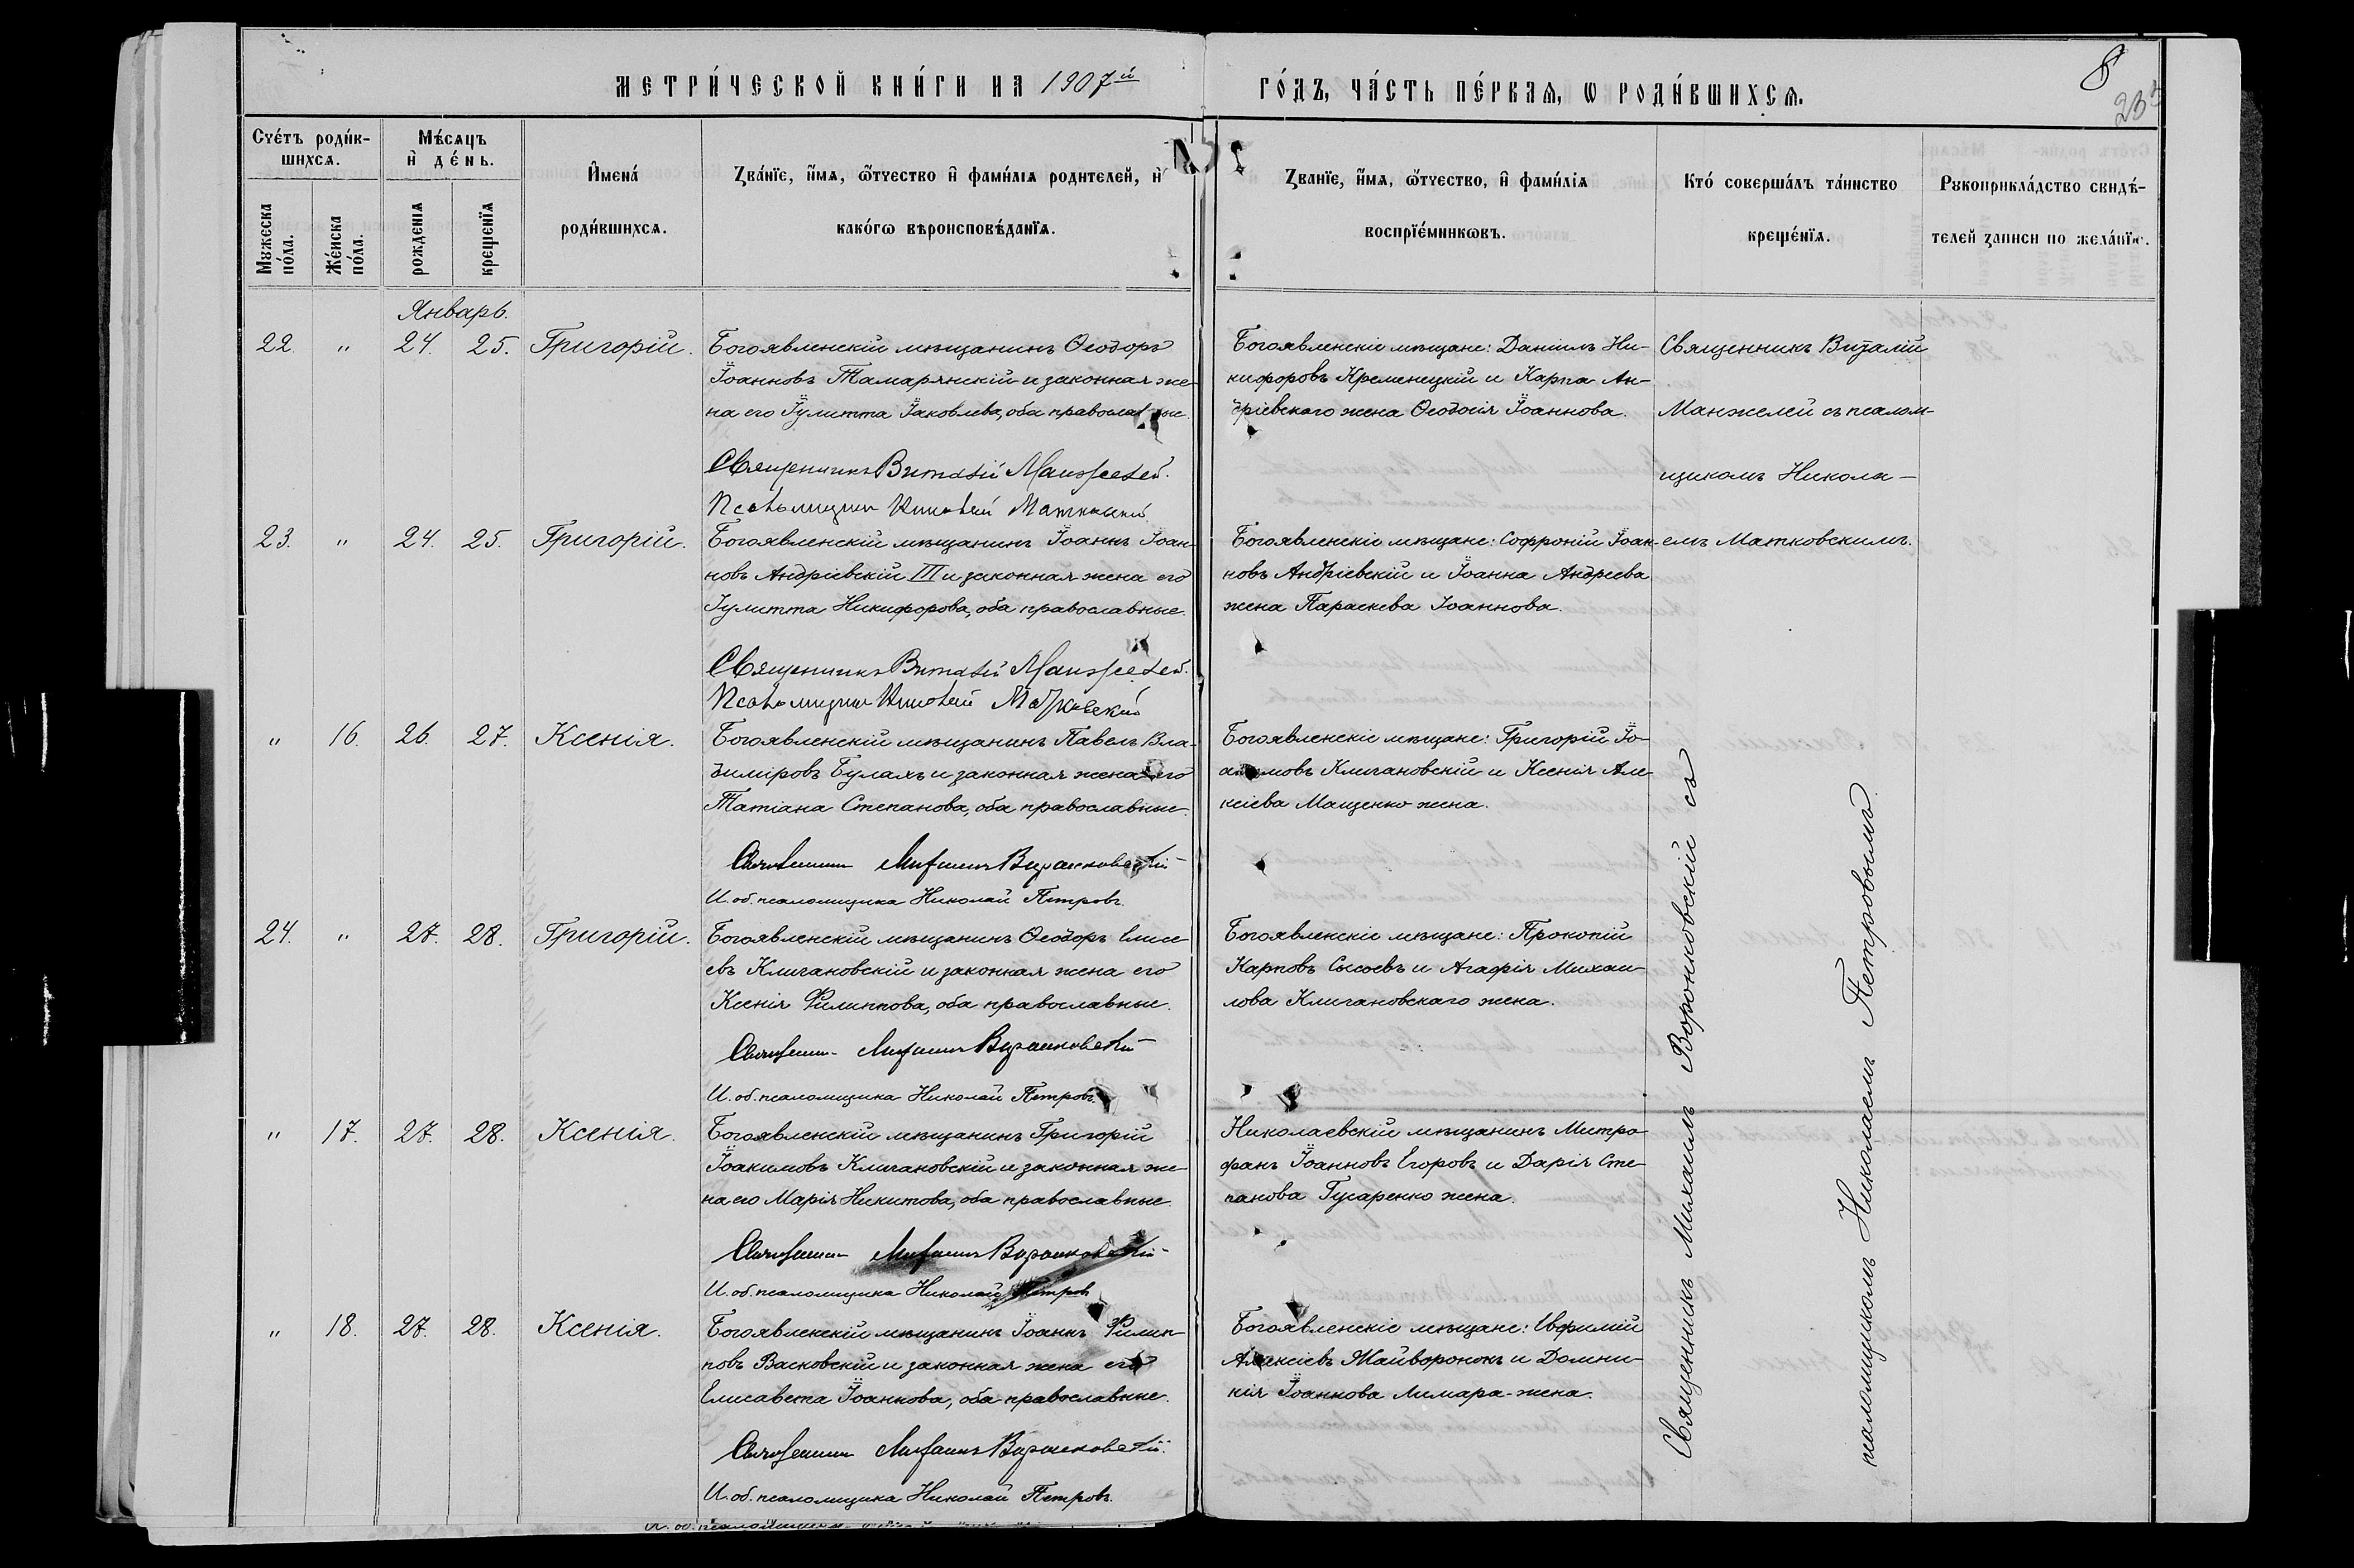 МЕТРИ́ЧЕСКОЙ КНИ́ГИ НА 1907й
ГО́ДЪ, ЧА́СТЬ ПЕ́РВАЯ, Ѡ РОДИ́ВШИХСѦ.
8
Счéтъ роди́в-
шихсѧ.
Мѣ́сѧцъ
и҆ де́нь.
Мꙋжеска
по́ла.
Же́нска
по́ла.
рожденіѧ
крещенїѧ
И҆мена́
роди́вшихсѧ.
Зва́нїе, и҆́мѧ, ѻ҆́тчество и҆ фами́лїѧ родителей, и҆
како́гѡ вѣроисповѣ́данїѧ.
Зва́нїе, и҆́мѧ, ѻ҆́тчество, и҆ фами́лїѧ
воспрїе́мникѡвъ.
Кто́ соверша́лъ та́инство
креще́нїѧ.
Рꙋкоприкла́дство свидѣ́-
телей записи по жела́нїю.
Январь.
22. " 24. 25. Григорій.
Богоявленскій мѣщанинъ Ѳеодоръ
Іоанновъ Тамарянскій и законная же-
на его Іулитта Іаковлева, оба православные.
Священникъ Виталій Манжелей.
Псаломщикъ Николай Матковскій
Богоявленскіе мѣщане: Даніилъ Ни-
кифоровъ Кременецкій и Карпа Ан-
дріевскаго жена Ѳеодосія Іоаннова.
Священникъ Виталій
Манжелей съ псалом-
щикомъ Никола-
емъ Матковскимъ.
23. " 24. 25. Григорій.
Богоявленскій мѣщанинъ Іоаннъ Іоан-
новъ Андріевскій III и законная жена его
Іулитта Никифорова, оба православные.
Священникъ Виталій Манжелей.
Псаломщикъ Николай Матковскій
Богоявленскіе мѣщане: Софроній Іоан-
новъ Андріевскій и Іоанна Андреева
жена Параскева Іоаннова.
" 16. 26. 27. Ксенія.
Богоявленскій мѣщанинъ Павелъ Вла-
диміровъ Булахъ и законная жена его
Татіана Степанова, оба православные.
Священникъ Михаилъ Воронковскій
И. об. псаломщика Николай Петровъ.
Богоявленскіе мѣщане: Григорій Іо-
акимовъ Клигановскій и Ксенія Але-
ксіева Мащенко жена.
Священникъ Михаилъ Воронковскій съ
псаломщикомъ Николаемъ Петровымъ
24. " 27. 28. Григорій.
Богоявленскій мѣщанинъ Ѳеодоръ Елисе-
евъ Клигановскій и законная жена его
Ксенія Филиппова, оба православные.
Священникъ Михаилъ Воронковскій
И. об. псаломщика Николай Петровъ.
Богоявленскіе мѣщане: Прокопій
Карповъ Сысоевъ и Агафія Михаи-
лова Клигановскаго жена.
" 17. 27. 28. Ксенія.
Богоявленскій мѣщанинъ Григорій
Іоакимовъ Клигановскій и законная же-
на его Марія Никитова, оба православные.
Священникъ Михаилъ Воронковскій
И. об. псаломщика Николай Петровъ
Николаевскій мѣщанинъ Митро-
фанъ Іоанновъ Егоровъ и Дарія Сте-
панова Гусаренко жена.
" 18. 27. 28. Ксенія.
Богоявленскій мѣщанинъ Іоаннъ Филип-
повъ Васковскій и законная жена его
Елисавета Іоаннова, оба православные.
Священникъ Михаилъ Воронковскій.
И. об. псаломщика Николай Петровъ.
Богоявленскіе мѣщане: Евфимій
Алексіевъ Майворонокъ и Домни-
кія Іоаннова Лимара жена.